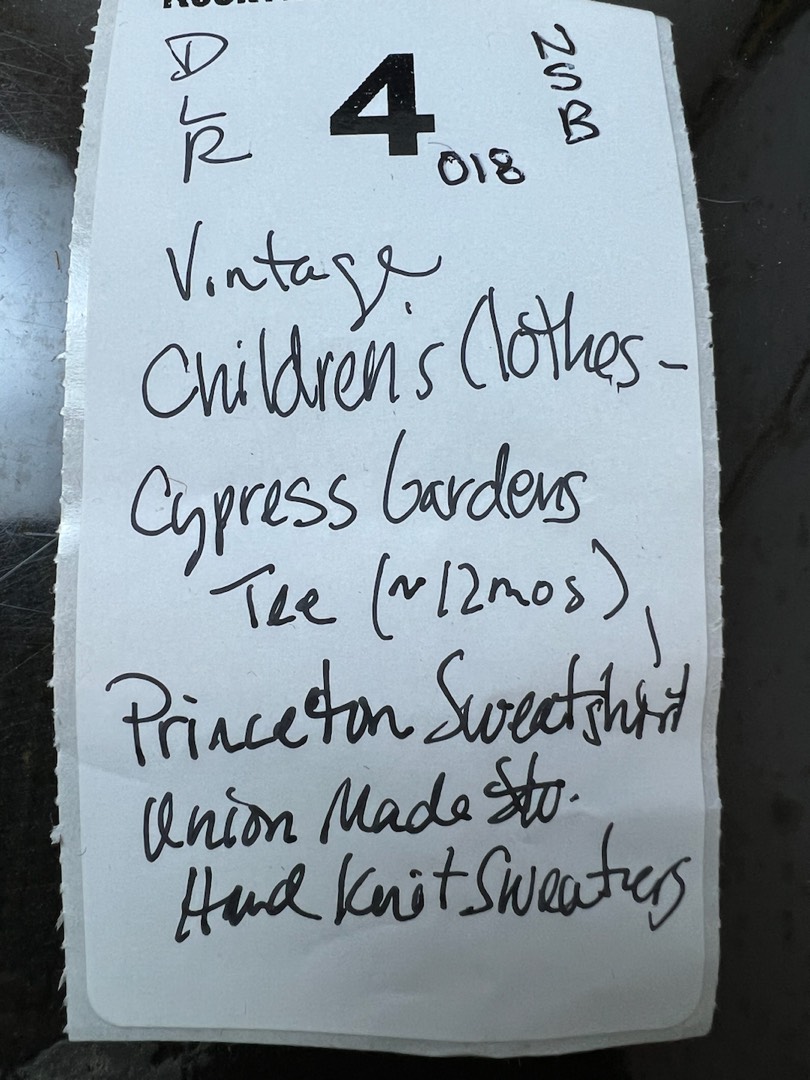 D
L
R
4
018
N
S
B
Vintage
Children's Clothes -
Cypress Gardens
Tee (~12mos),
Princeton Sweatshirt
Union Made
Hand Knit Sweaters